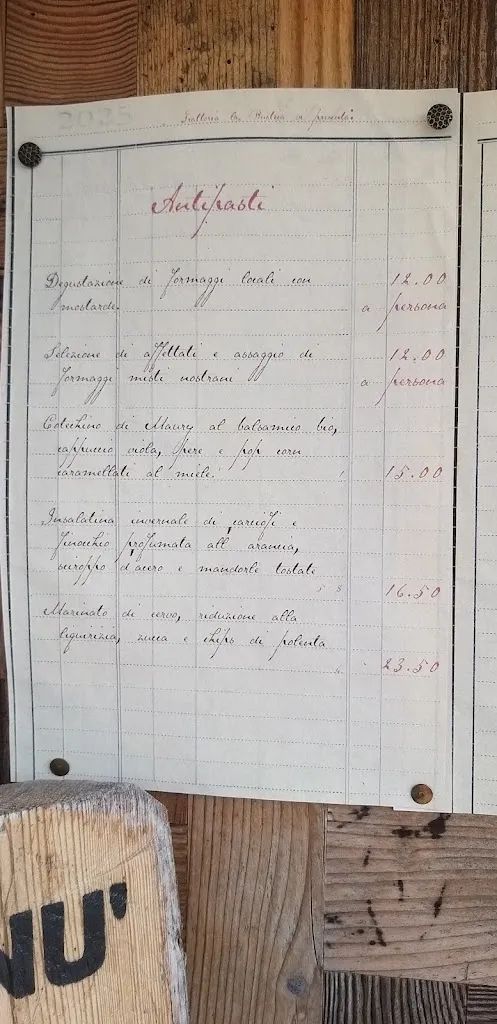 2025
Trattoria La
Antipasti
Degustazione di formaggi locali con 12.00
mostarde. a persona
Selezione di affettati e assaggio di 12.00
formaggi misti nostrani a persona
Cotechino di Maury al balsamico bio,
cappuccio viola, pere e pop corn
caramellati al miele. 15.00
Insalatina invernale di carciofi e
finocchio profumata all arancia,
sciroppo d'acero e mandorle tostate
16.50
Marinato di cervo, riduzione alla
liquirizia, zucca e chips di polenta
23.50
NU'